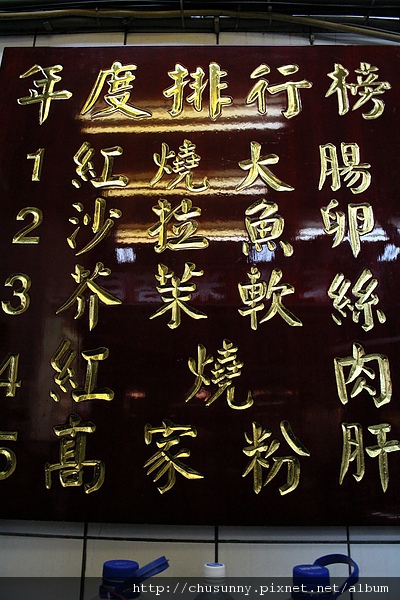 年度排行榜
1 紅燒大腸
2 沙拉魚卵
3 芥茉軟絲
4 紅燒肉
5 高家粉肝
http://chusunny.pixnet.net/album